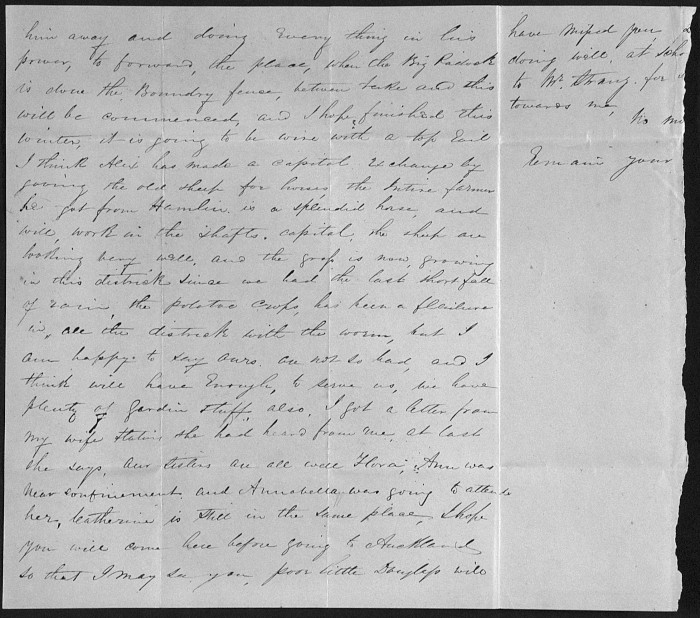 him away and doing Every thing in his
power, to forward, the place, when the Big Padock
is done the Boundry fence, between take and this
will be commenced, and I hope finished this
winter, it is going to be wire with a top Rail
I think Alix has made a capital Exchange by
giving the old sheep for horses, the Intire farmer
he got from Hamlin is a splendid horse, and
will work in the shafts. capital, the sheep are
looking very well, and the grass is now growing
in this distrisk since we had the last short fall
of rain, the potatoe crops, has been a fleilure
in, all the distrisk with the worm, but I
am happy to say ours. are not so bad, and I
think will have Enough, to serve us, we have
plenty of gardin stuff, also, I got a letter from
my wife stating she had heard from me, at last
she says, our sisters are all well Flora, Ann was
near confinement and Annabella was going to attend
her, Catherine is still in the same place, I hope
you will come here before going to Auckland
so that I may see you, poor little Douglass will
have missed you
doing well, at
to Mr. Strang. for
towards me,
No
Remain your